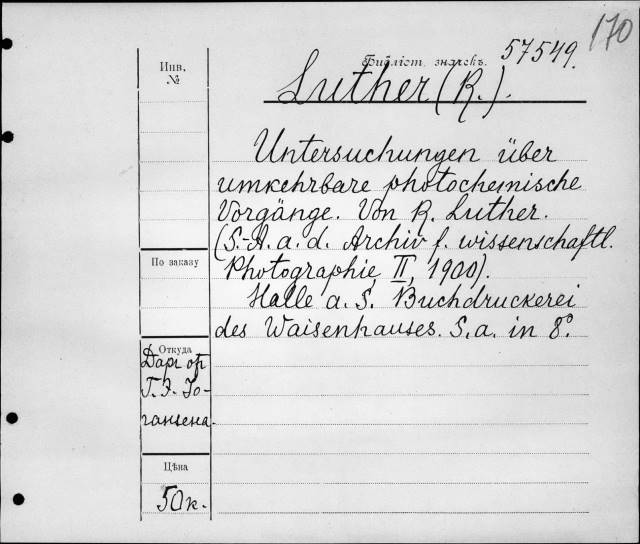 170
Библіот. значекъ. 57549.
Luther (R.).
Инв.
№
Untersuchungen über
umkehrbare photochemische
Vorgänge. Von R. Luther.
(S.-A. a. d. Archiv f. wissenschaftl.
Photographie, II, 1900).
Halle a. S. Buchdruckerei
des Waisenhauses. S. a. in 8°.
По заказу
Откуда
Даръ от
Г. Э. Іо-
гансена.
Цѣна
50 к.